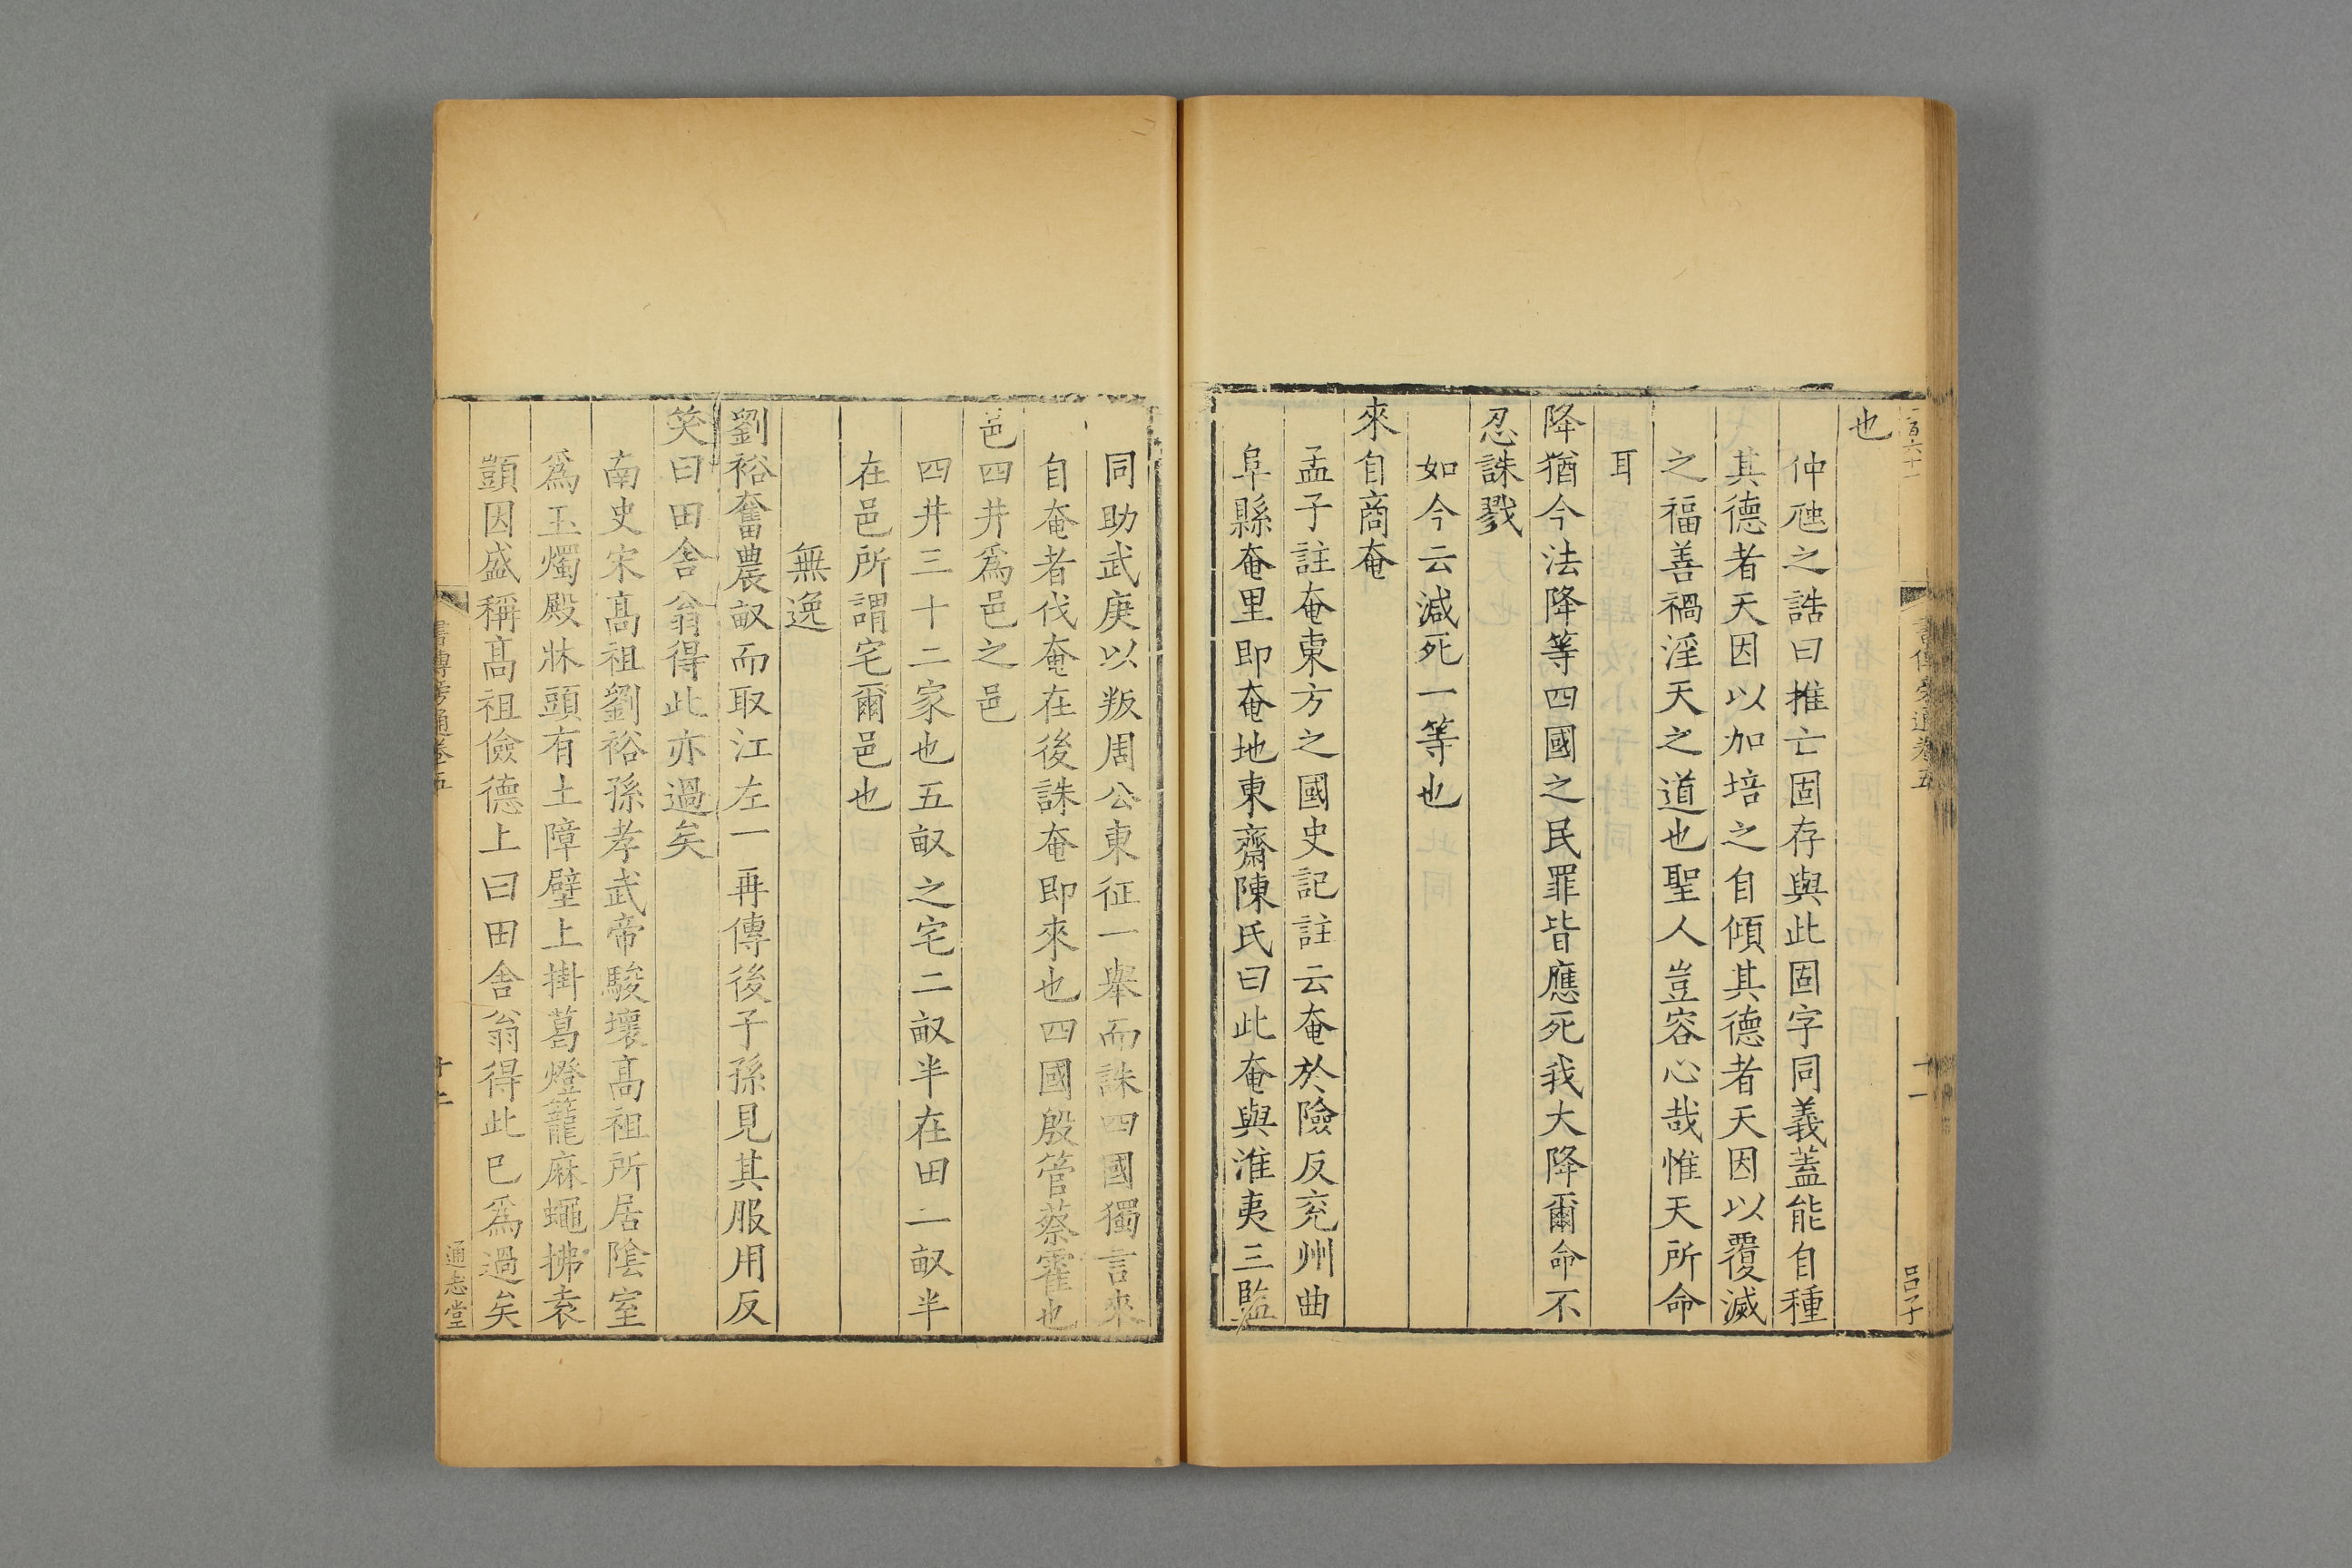 也
仲虺之誥曰推亡固存與此固字同義蓋能自種
其德者天因以加培之自傾其德者天因以覆滅
之福善禍淫天之道也聖人豈容心哉惟天天所命
耳
降猶今法降等四國之民罪皆應死我大降爾命不
忍誅戮
如今云減死一等也
來自商奄
孟子註奄東方之國史記註云奄於險反兖州曲
阜縣奄里即奄地東齋陳氏曰此奄與淮夷三監
同助武庚以叛周公東征一舉而誅四國獨言來
自奄者伐奄在後誅奄即來也四國殷管蔡霍也
邑四井爲邑之邑
四井三十二家也五畝之宅二畝半在田二畝半
在邑所謂宅爾邑也
無逸
劉裕奮農畝而取江左一再傳後子孫見其服用反
笑曰田舍翁得此亦過矣
南史宋髙祖劉裕孫孝武帝駿壞髙祖所居陰室
爲玉燭殿牀頭有土障壁上掛葛燈籠麻蠅拂袁
顗因盛稱髙祖儉德上曰田舍翁得此已爲過矣
書傳旁通卷五
通志堂